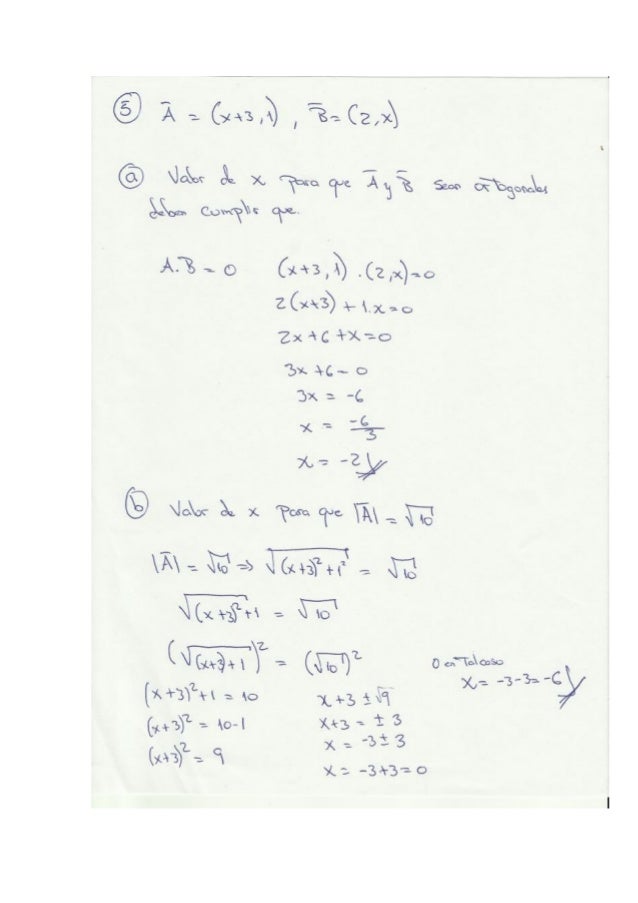 ⑤ Ā = (x+3,1) , B̄ = (2,x)
ⓐ Valor de x para que Ā y B̄ sean ortogonales
deben cumplir que.
A.B = 0 (x+3,1).(2,x)=0
2(x+3) + 1.x=0
2x+6+x=0
3x+6-0
3x = -6
x = -6/3
x = -2
ⓑ Valor de x para que |Ā| = √10
|Ā| = √10 ⇒ √(x+3)²+1² = √10
√(x+3)²+1 = √10
(√(x+3)+1)² = (√10)²
(x+3)²+1 = 10
(x+3)² = 10-1
(x+3)² = 9
x+3 ±√9
x+3 = ± 3
x = -3± 3
x = -3+3=0
O en tal caso
x = -3-3=-6